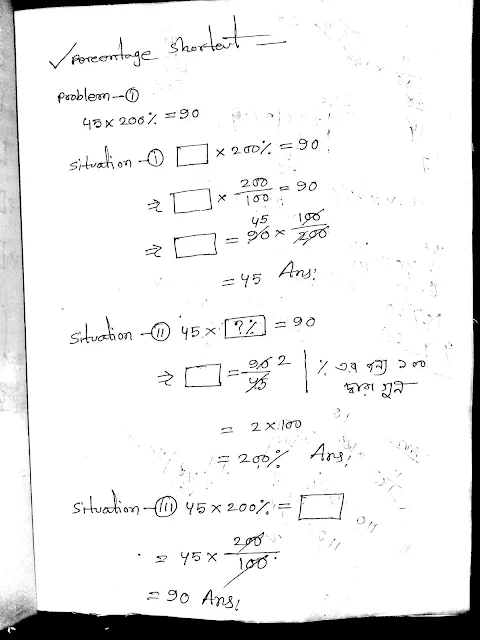 ✓ Percentage Shortcut —
Problem — ①
45 x 200% = 90
situation - ① □ x 200% = 90
⇒ □ x 200/100 = 90
⇒ □ = 90 45 x 100/200
= 45 Ans:
Situation - ② 45 x [?%] = 90
⇒ □ = 90/45 2 | % এর জন্য ১০০
দ্বারা গুন
= 2 x 100
= 200% Ans:
Situation - ③ 45 x 200% = □
= 45 x 200/100
= 90 Ans: